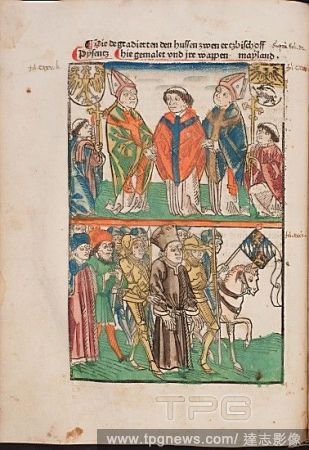 Die degradierten den hussen zwen ertzbischoff
Pysentz hie gemalet und jre wapen mayland.
TPG
www.tpgnews.com/ 達志影像